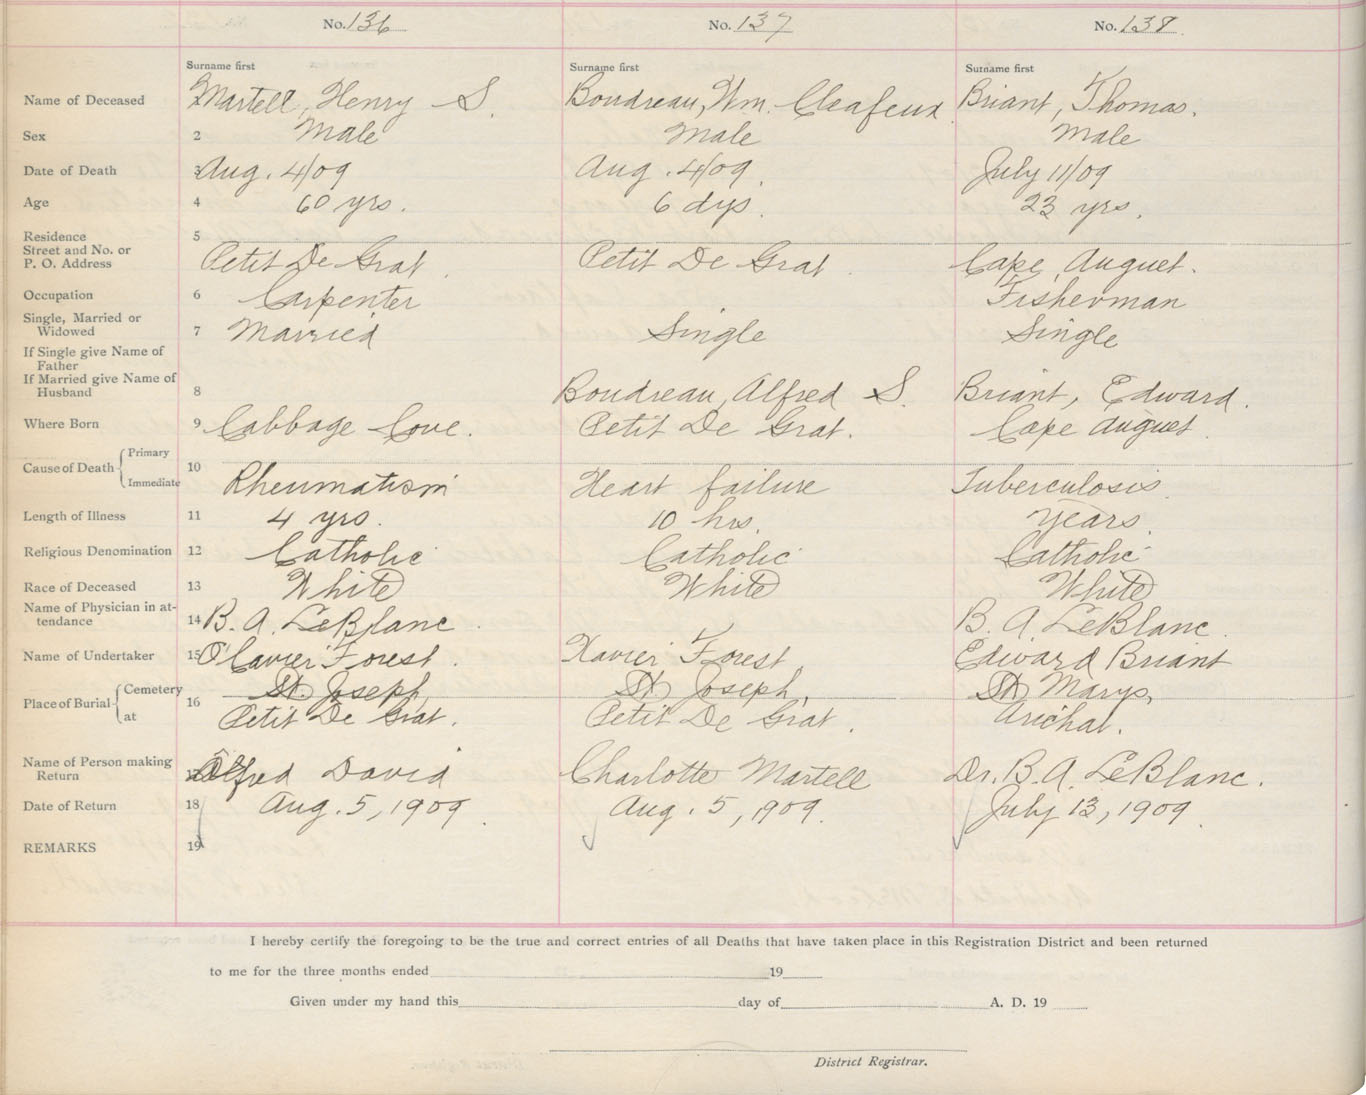 No. 136 No. 137 No. 138
Surname first Surname first Surname first
Name of Deceased Martell, Henry S. Boudreau, Wm. Cleafeux Briant, Thomas.
Sex 2 Male Male Male
Date of Death 3 Aug. 4/09 Aug. 4/09. July 11/09
Age 4 60 yrs. 6 dys. 23 yrs.
Residence 5
Street and No. or
P. O. Address Petit De Grat. Petit De Grat. Cape Auguet.
Occupation 6 Carpenter Fisherman
Single, Married or
Widowed 7 Married Single Single
If Single give Name of
Father
If Married give Name of
Husband 8 Boudreau, Alfred S. Briant, Edward.
Where Born 9 Cabbage Cove. Petit De Grat. Cape Auguet
Cause of Death Primary
Immediate 10 Rheumatism Heart failure Tuberculosis
Length of Illness 11 4 yrs. 10 hrs. years.
Religious Denomination 12 Catholic Catholic Catholic
Race of Deceased 13 White White White
Name of Physician in at-
tendance 14 B. A. LeBlanc. B. A. LeBlanc.
Name of Undertaker 15 Xavier Forest Edward Briant
Place of Burial Cemetery St. Joseph, St. Joseph, St Marys,
at 16 Petit De Grat. Petit De Grat. Arichat.
Name of Person making
Return Alfred David Charlotte Martell Dr. B. A. LeBlanc.
Date of Return 18 Aug. 5, 1909. Aug. 5, 1909. July 13, 1909.
REMARKS 19
I hereby certify the foregoing to be the true and correct entries of all Deaths that have taken place in this Registration District and been returned
to me for the three months ended 19
Given under my hand this day of A. D. 19
District Registrar.